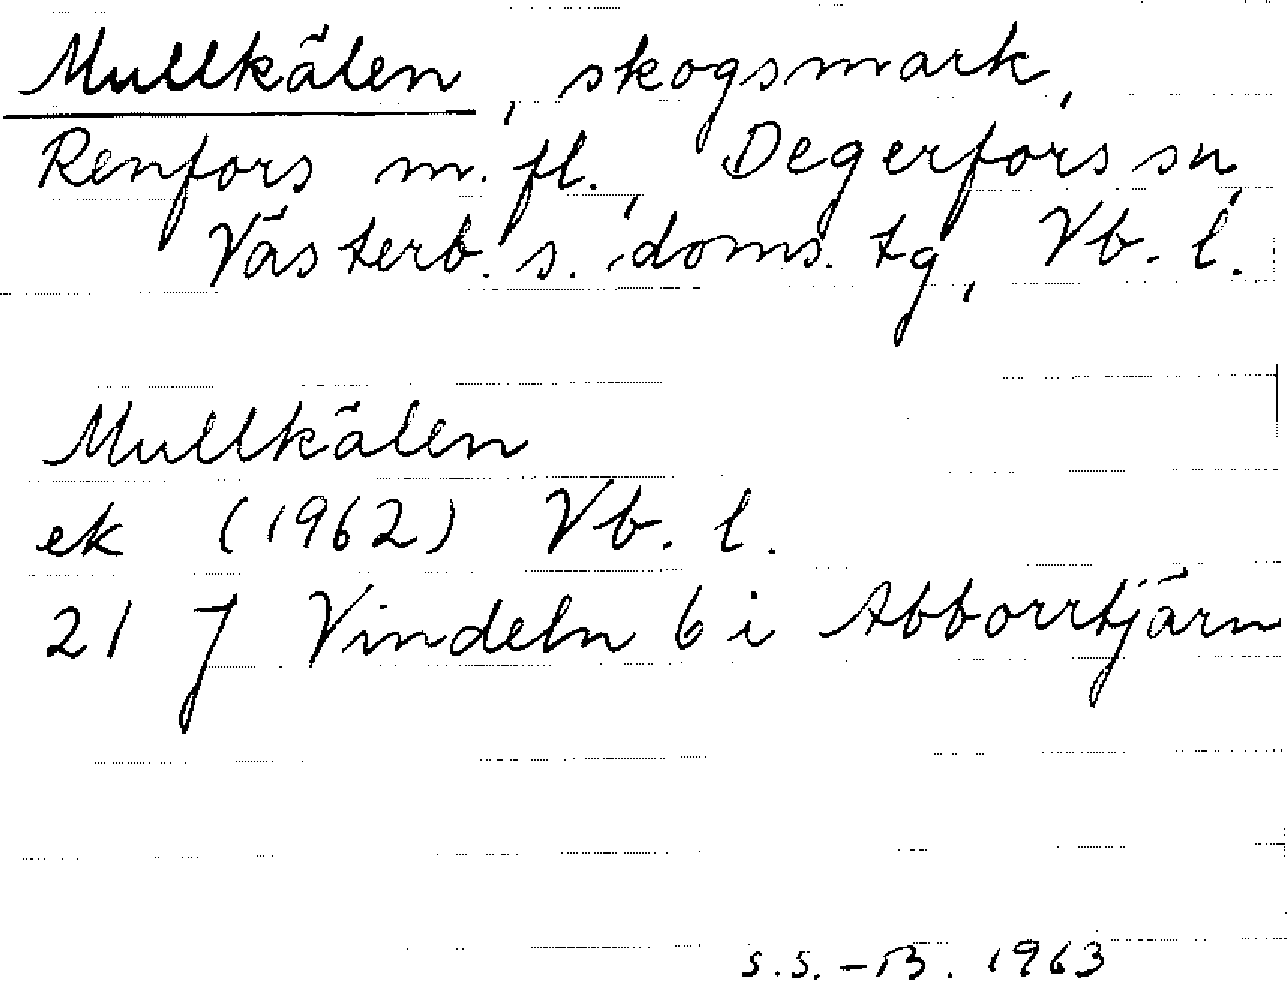 Mullkälen, skogsmark,
Renfors m. fl., Degerfors sn,
Västerb. s. doms. tg, Vb. l.
Mullkälen
ek (1962) Vb. l.
21 J Vindeln 6 i Abborrtjärn
s.s.-B. 1963